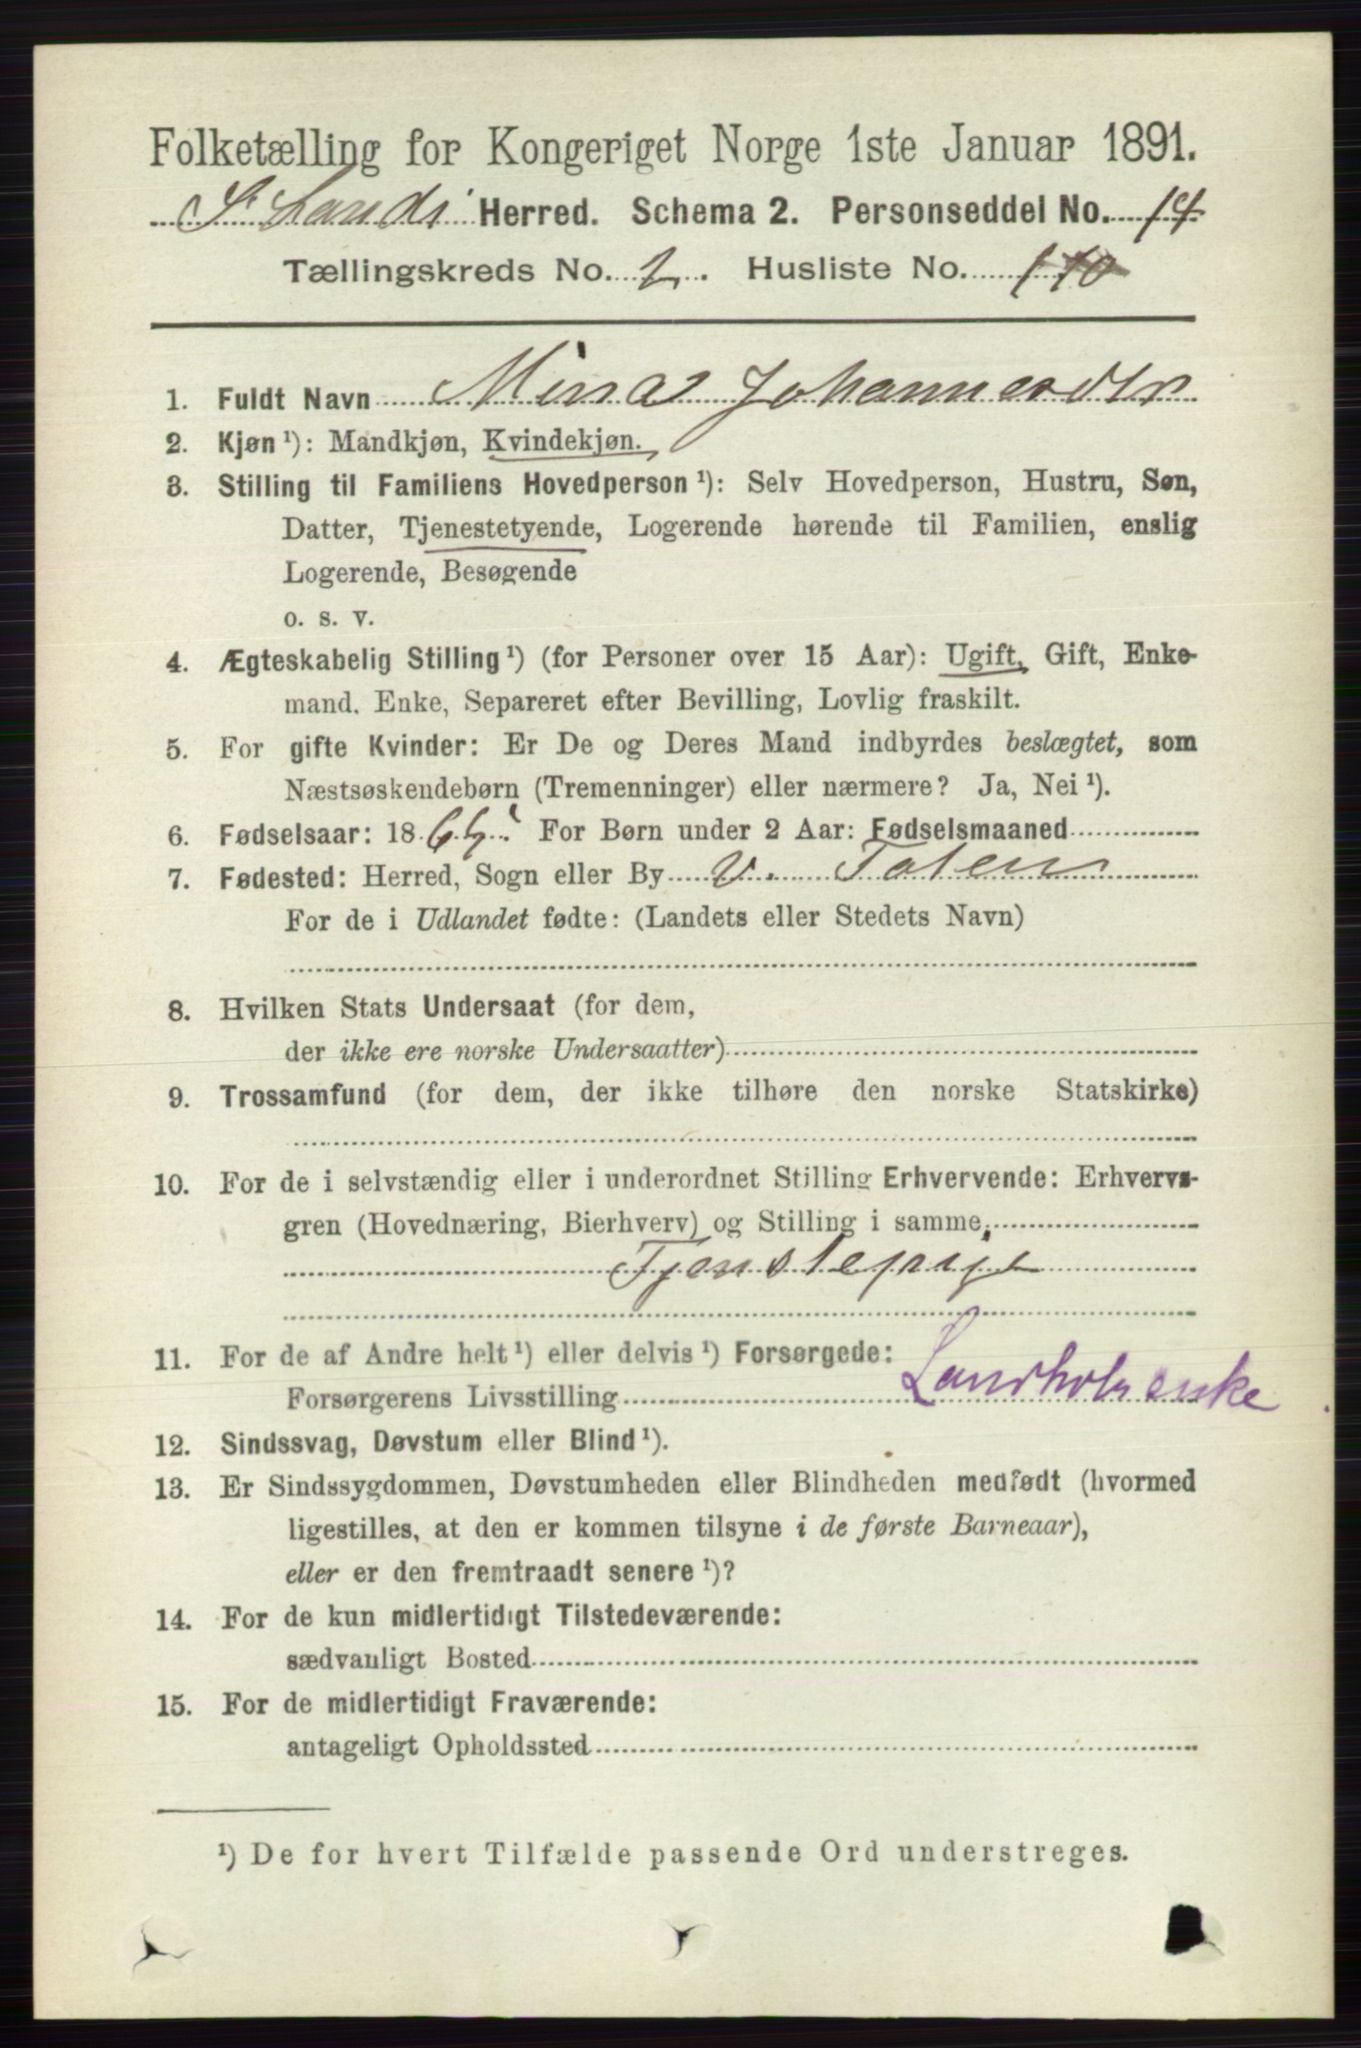 Folketælling for Kongeriget Norge 1ste Januar 1891.
S. Lands Herred. Schema 2. Personseddel No. 14
Tællingskreds No. 1. Husliste No.
1. Fuldt Navn Mina Johannesdtr
2. Kjøn ¹): Mandkjøn, Kvindekjøn.
3. Stilling til Familiens Hovedperson ¹): Selv Hovedperson, Hustru, Søn,
Datter, Tjenestetyende, Logerende hørende til Familien, enslig
Logerende, Besøgende
o. s. v.
4. Ægteskabelig Stilling ¹) (for Personer over 15 Aar): Ugift, Gift, Enke-
mand, Enke, Separeret efter Bevilling, Lovlig fraskilt.
5. For gifte Kvinder: Er De og Deres Mand indbyrdes beslægtet, som
Næstsøskendebørn (Tremenninger) eller nærmere? Ja, Nei ¹).
6. Fødselsaar: 18 For Børn under 2 Aar: Fødselsmaaned
7. Fødested: Herred, Sogn eller By V. Toten
For de i Udlandet fødte: (Landets eller Stedets Navn)
8. Hvilken Stats Undersaat (for dem,
der ikke ere norske Undersaatter)
9. Trossamfund (for dem, der ikke tilhøre den norske Statskirke)
10. For de i selvstændig eller i underordnet Stilling Erhvervende: Erhvervs-
gren (Hovednæring, Bierhverv) og Stilling i samme,
Tjenstepige
11. For de af Andre helt ¹) eller delvis ¹) Forsørgede:
Forsørgerens Livsstilling
12. Sindssvag, Døvstum eller Blind ¹).
13. Er Sindssygdommen, Døvstumheden eller Blindheden medfødt (hvormed
ligestilles, at den er kommen tilsyne i de første Barneaar),
eller er den fremtraadt senere ¹)?
14. For de kun midlertidigt Tilstedeværende:
sædvanligt Bosted
15. For de midlertidigt Fraværende:
antageligt Opholdssted
¹) De for hvert Tilfælde passende Ord understreges.